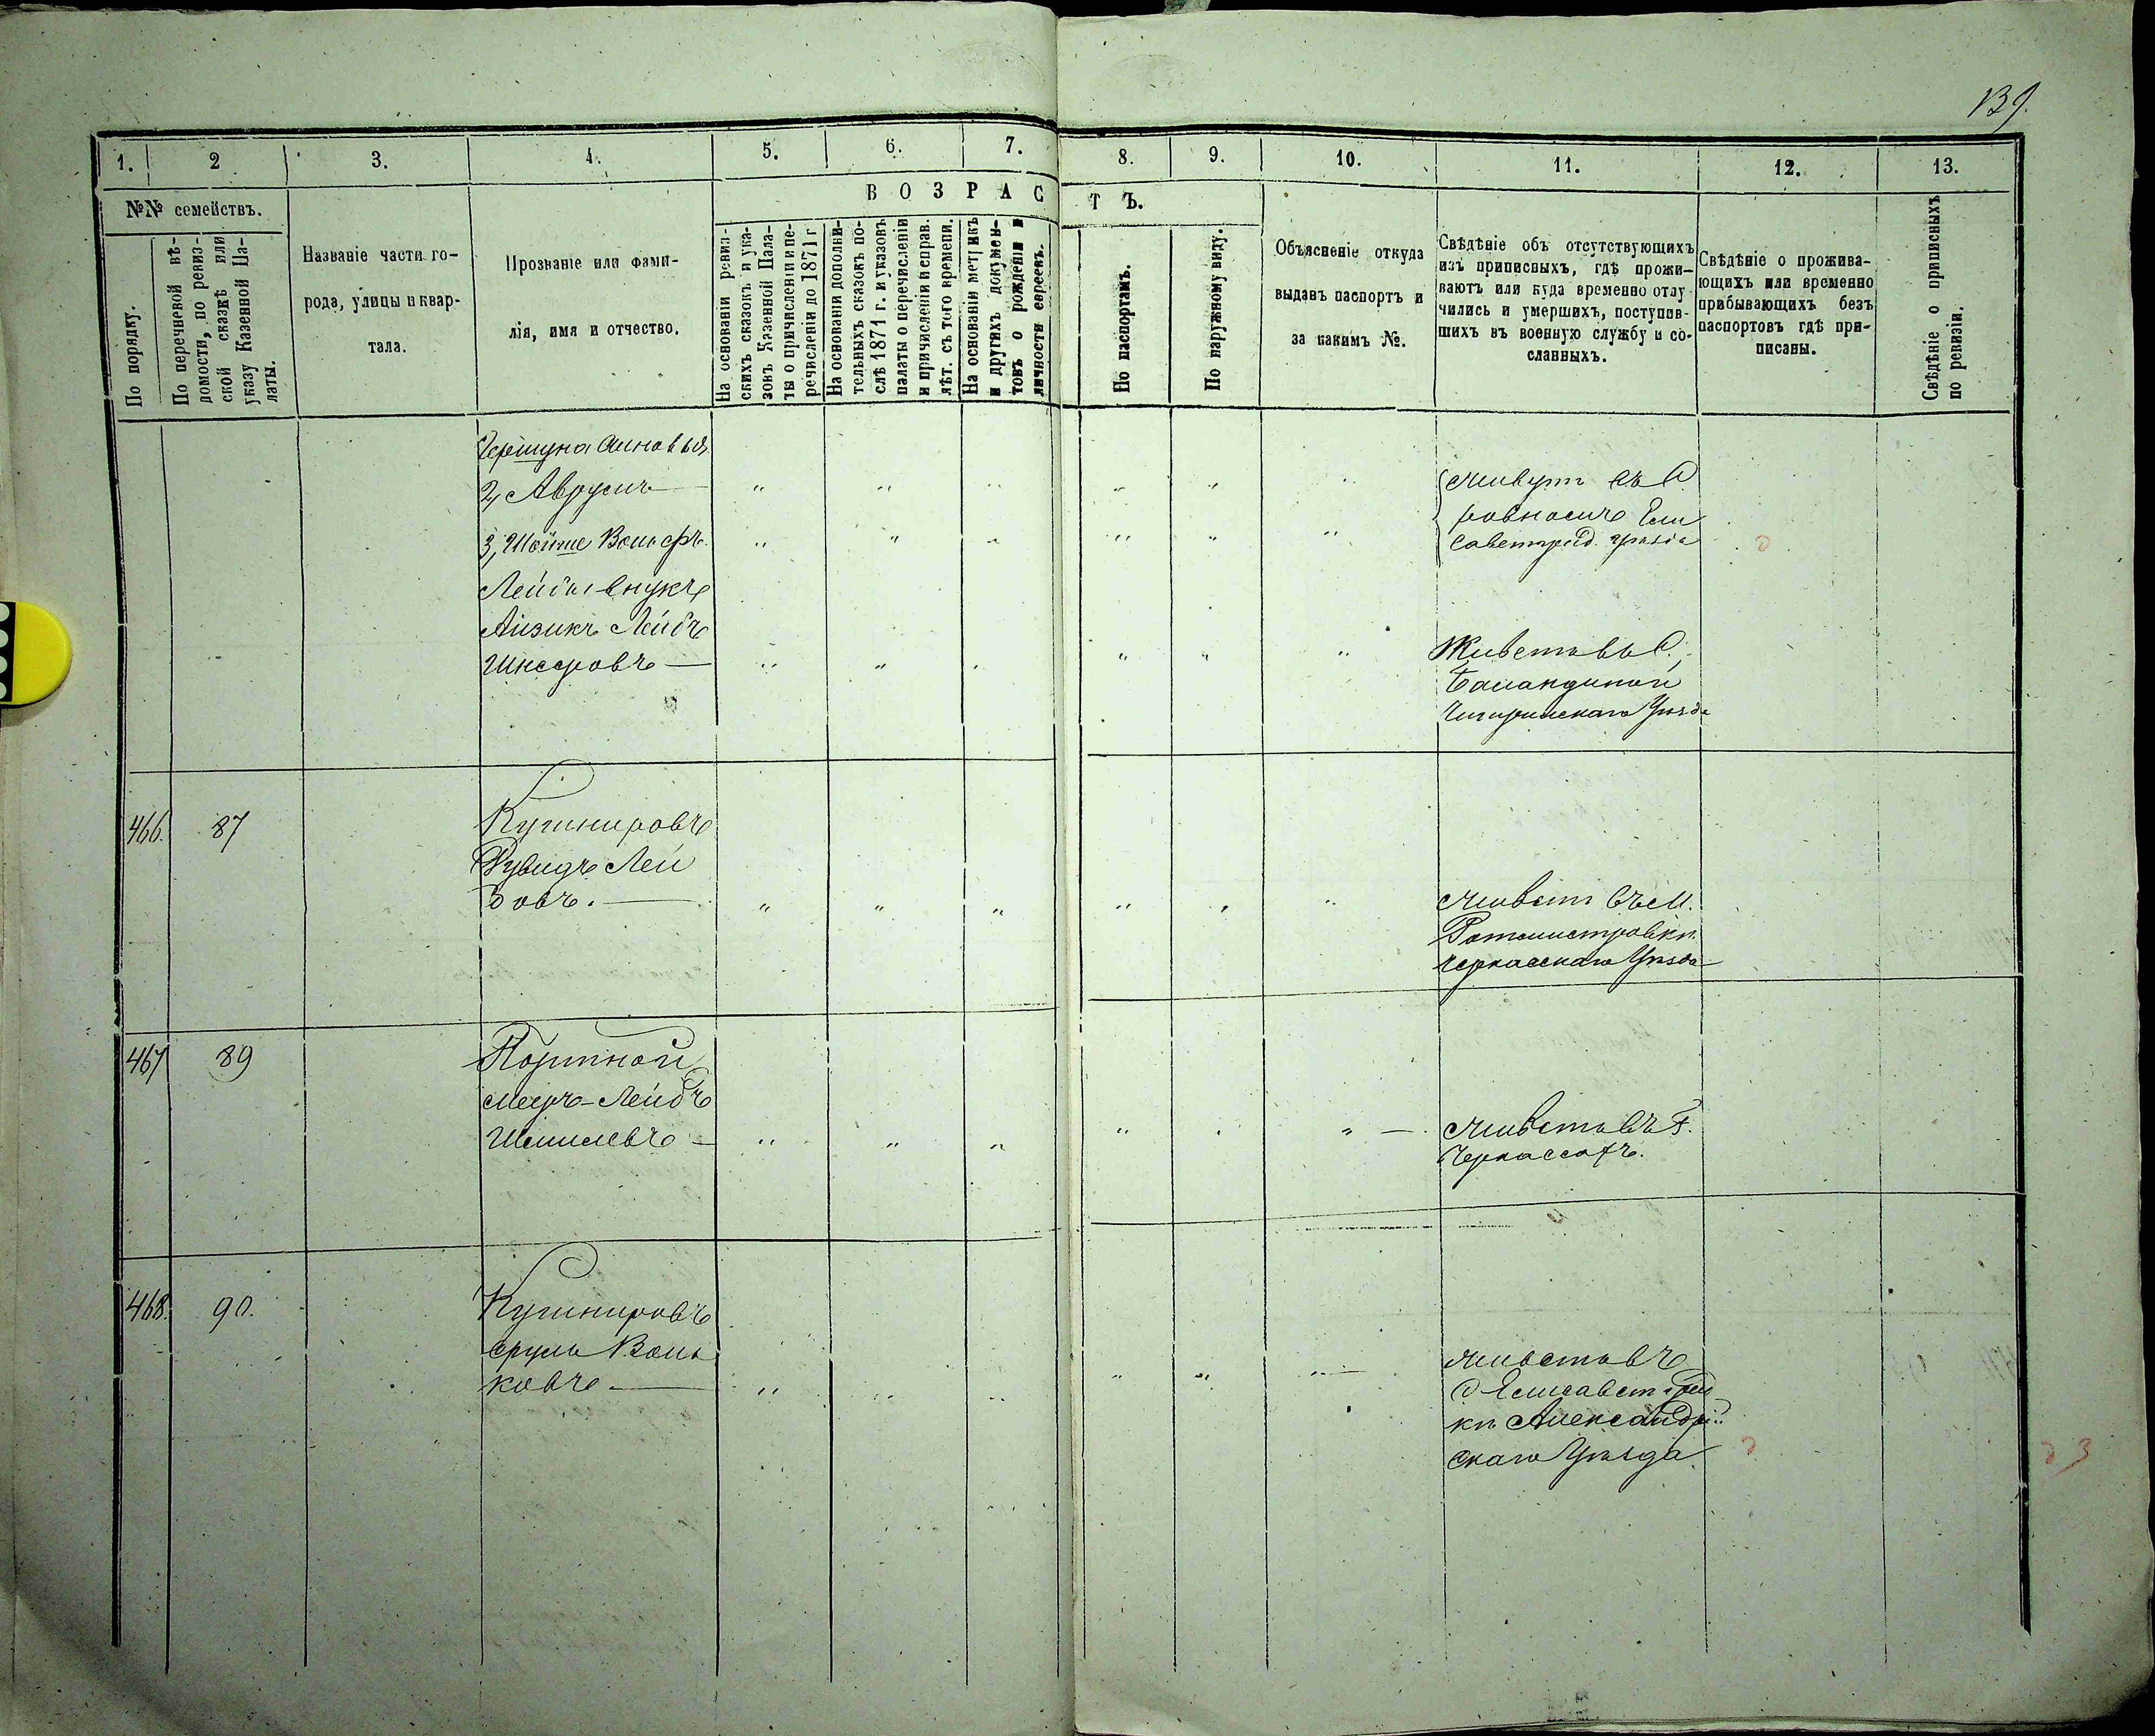 139.
1. 2 3. 4. 5. 6. 7. 8. 9. 10. 11. 12. 13.
№№ семействъ.
По порядку.
По перечневой вѣ-
домости, по ревиз-
ской сказкѣ или
указу Казенной Па-
латы.
Названіе части го-
рода, улицы и квар-
тала.
Прозваніе или фами-
лія, имя и отчество.
ВОЗРАСТЪ.
На основаніи ревиз-
скихъ сказокъ и ука-
зовъ Казенной Пала-
ты о причисленіи и пе-
речисленіи до 1871 г
На основаніи дополни-
тельныхъ сказокъ по-
слѣ 1871 г. и указовъ
палаты о перечисленіи
и причисленіи и справ.
лѣт. съ того времени.
На основаніи метрикъ
и другихъ докумен-
товъ о рожденіи и
личности евреевъ.
По паспортамъ.
По наружному виду.
Объясненіе откуда
выданъ паспортъ и
за какимъ №.
Свѣдѣніе объ отсутствующихъ
изъ приписныхъ, гдѣ прожи-
ваютъ или куда временно отлу
чились и умершихъ, поступив-
шихъ въ военную службу и со-
сланныхъ.
Свѣдѣніе о прожива-
ющихъ или временно
прибывающихъ безъ
паспортовъ гдѣ при-
писаны.
Свѣдѣніе о приписныхъ
по ревизіи.
Гершуна сыновья
2, Аврумъ
3, Шойше Вольфъ.
Живутъ въ С
ровномъ Ели
саветград. уѣзда
Лейбы внукъ
Айзикъ Лейбъ
Шнееровъ
Живетъ въ С.
Баландиной
Чигиринскаго Уѣзда
466. 87
Кушнировъ
Рувидъ Лей
бовъ.
Живетъ въ М.
Ротмистровкѣ
Черкасскаго Уѣзда
467 89
Портной
Мееръ-Лейбъ
Шмилевъ
Живетъ въ Г.
Черкассахъ.
468. 90.
Кушнировъ
Сруль Воль
ковъ
Живетъ въ
С Елисаветград
кѣ Александрій
скаго Уѣзда